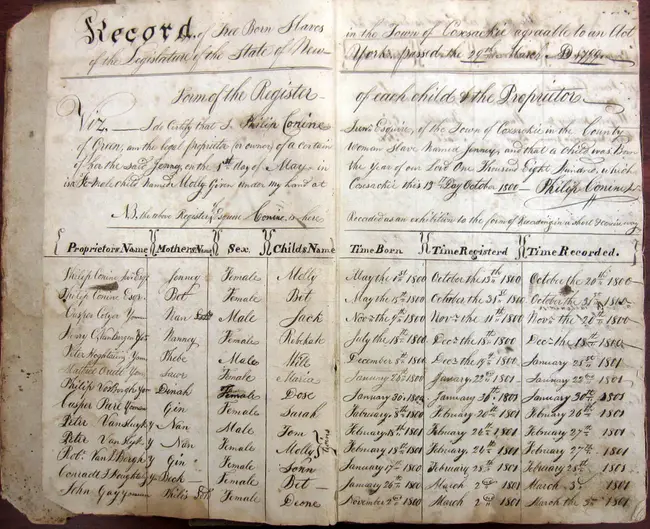 Record of Free Born Slaves in the Town of Coxsackie agreable to an Act
of the Legislature of the State of New- York passed the 29th March AD 1799
Form of the Register of each child & the Proprietor
Viz. I do Certify that I Philip Conine Junr Esquire, of the Town of Coxsackie in the County
of Green, am the legal proprietor (or owner) of a certain Woman Slave Named Jenney, and that a Child was Born
of her the said Jenney, on the 1st day of May in the Year of our Lord One Thousand Eight Hundred, which
is a Female child Named Molly Given under my hand at Coxsackie this 13th Day October 1800 Philip Conine Jr
N.B. the above Register of Esquire Conine, is here Recorded as an exhibition to the form of Recording in a short & concise way
Proprietors Name Mothers Name Sex. Childs Name Time Born Time Registerd Time Recorded.
Philip Conine Junr Esqr Jenney Female Molly May the 1st 1800 October the 13th 1800 October the 20th 1800
Philip Conine Esqr Bet Female Bet May the 1800 October the 31st 1800 October the 31st 1800
Casper Yom Nan Male Jack Novr the 1800 Novr the 11th 1800 Novr the 1800
Henry Yom Nanney Female Rebekah July the 18th 1800 Decr the 18th 1800 Decr the 18th 1800
Peter Yom Phebe Male December 1800 Decr the 1800 January 1801
Yom Female Maria January 1800 January 22nd 1801 January 22nd 1801
Philip Yom Dinah Female Dose January 30 January 1801 January 30th 1801
Casper Yom Gin Female Sarah February 1800 February 20th 1801 February 1801
Peter Van Nan Male Tom February 1801 February 1801 February 27th 1801
Peter Van Nan Female Molly Twins February 1801 February 1801 February 27th 1801
Robt. Van Gin Female January 17th 1800 February 28th 1801 February 28th 1801
Conradt Beck Female Bet January 1800 March 2nd 1801 March 3d 1801
John Female Deone November 2nd 1800 March 2nd 1801 March the 3d 1801